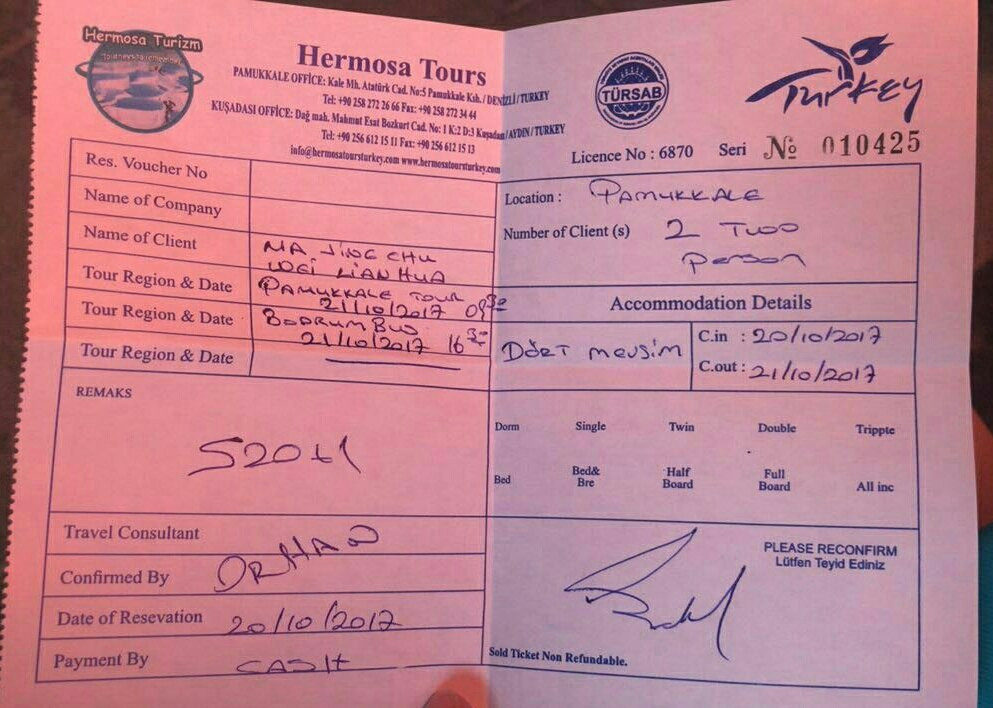 Hermosa Turizm
Hermosa Tours
PAMUKKALE OFFICE: Kale Mh. Atatürk Cad. No:5 Pamukkale Ksb. / DENİZLİ / TURKEY
Tel: +90 258 272 26 66 Fax: +90 258 272 34 44
KUŞADASI OFFICE: Dağ mah. Mahmut Esat Bozkurt Cad. No: 1 K:2 D:3 Kuşadası / AYDIN / TURKEY
Tel: +90 256 612 15 11 Fax: +90 256 612 15 13
info@hermosatoursturkey.com www.hermosatoursturkey.com
TÜRSAB
Turkey
Licence No : 6870 Seri № 010425
Res. Voucher No
Name of Company
Name of Client MA JING CHU
WEI LIAN HUA
Tour Region & Date PAMUKKALE TOUR
21/10/2017 09 30
Tour Region & Date BODRUM BUS
21/10/2017 16 30
Tour Region & Date
REMAKS
520 tl
Travel Consultant
Confirmed By ORHAN
Date of Resevation 20/10/2017
Payment By CASH
Location : PAMUKKALE
Number of Client (s) 2 Two
Person
Accommodation Details
DÖRT mevsim
C.in : 20/10/2017
C.out : 21/10/2017
Dorm Single Twin Double Trippte
Bed Bed& Bre Half Board Full Board All inc
PLEASE RECONFIRM
Lütfen Teyid Ediniz
Sold Ticket Non Refundable.